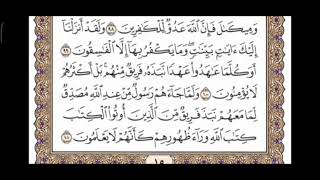 وَمِيكَىٰلَ فَإِنَّ ٱللَّهَ عَدُوٌّ لِّلْكَٰفِرِينَ ٩٨ وَلَقَدْ أَنزَلْنَآ
إِلَيْكَ ءَايَٰتٍۭ بَيِّنَٰتٍ وَمَا يَكْفُرُ بِهَآ إِلَّا ٱلْفَٰسِقُونَ ٩٩
أَوَكُلَّمَا عَٰهَدُوا۟ عَهْدًا نَّبَذَهُۥ فَرِيقٌ مِّنْهُم بَلْ أَكْثَرُهُمْ
لَا يُؤْمِنُونَ ١٠٠ وَلَمَّا جَآءَهُمْ رَسُولٌ مِّنْ عِندِ ٱللَّهِ مُصَدِّقٌ
لِّمَا مَعَهُمْ نَبَذَ فَرِيقٌ مِّنَ ٱلَّذِينَ أُوتُوا۟ ٱلْكِتَٰبَ
كِتَٰبَ ٱللَّهِ وَرَآءَ ظُهُورِهِمْ كَأَنَّهُمْ لَا يَعْلَمُونَ ١٠١
١٥